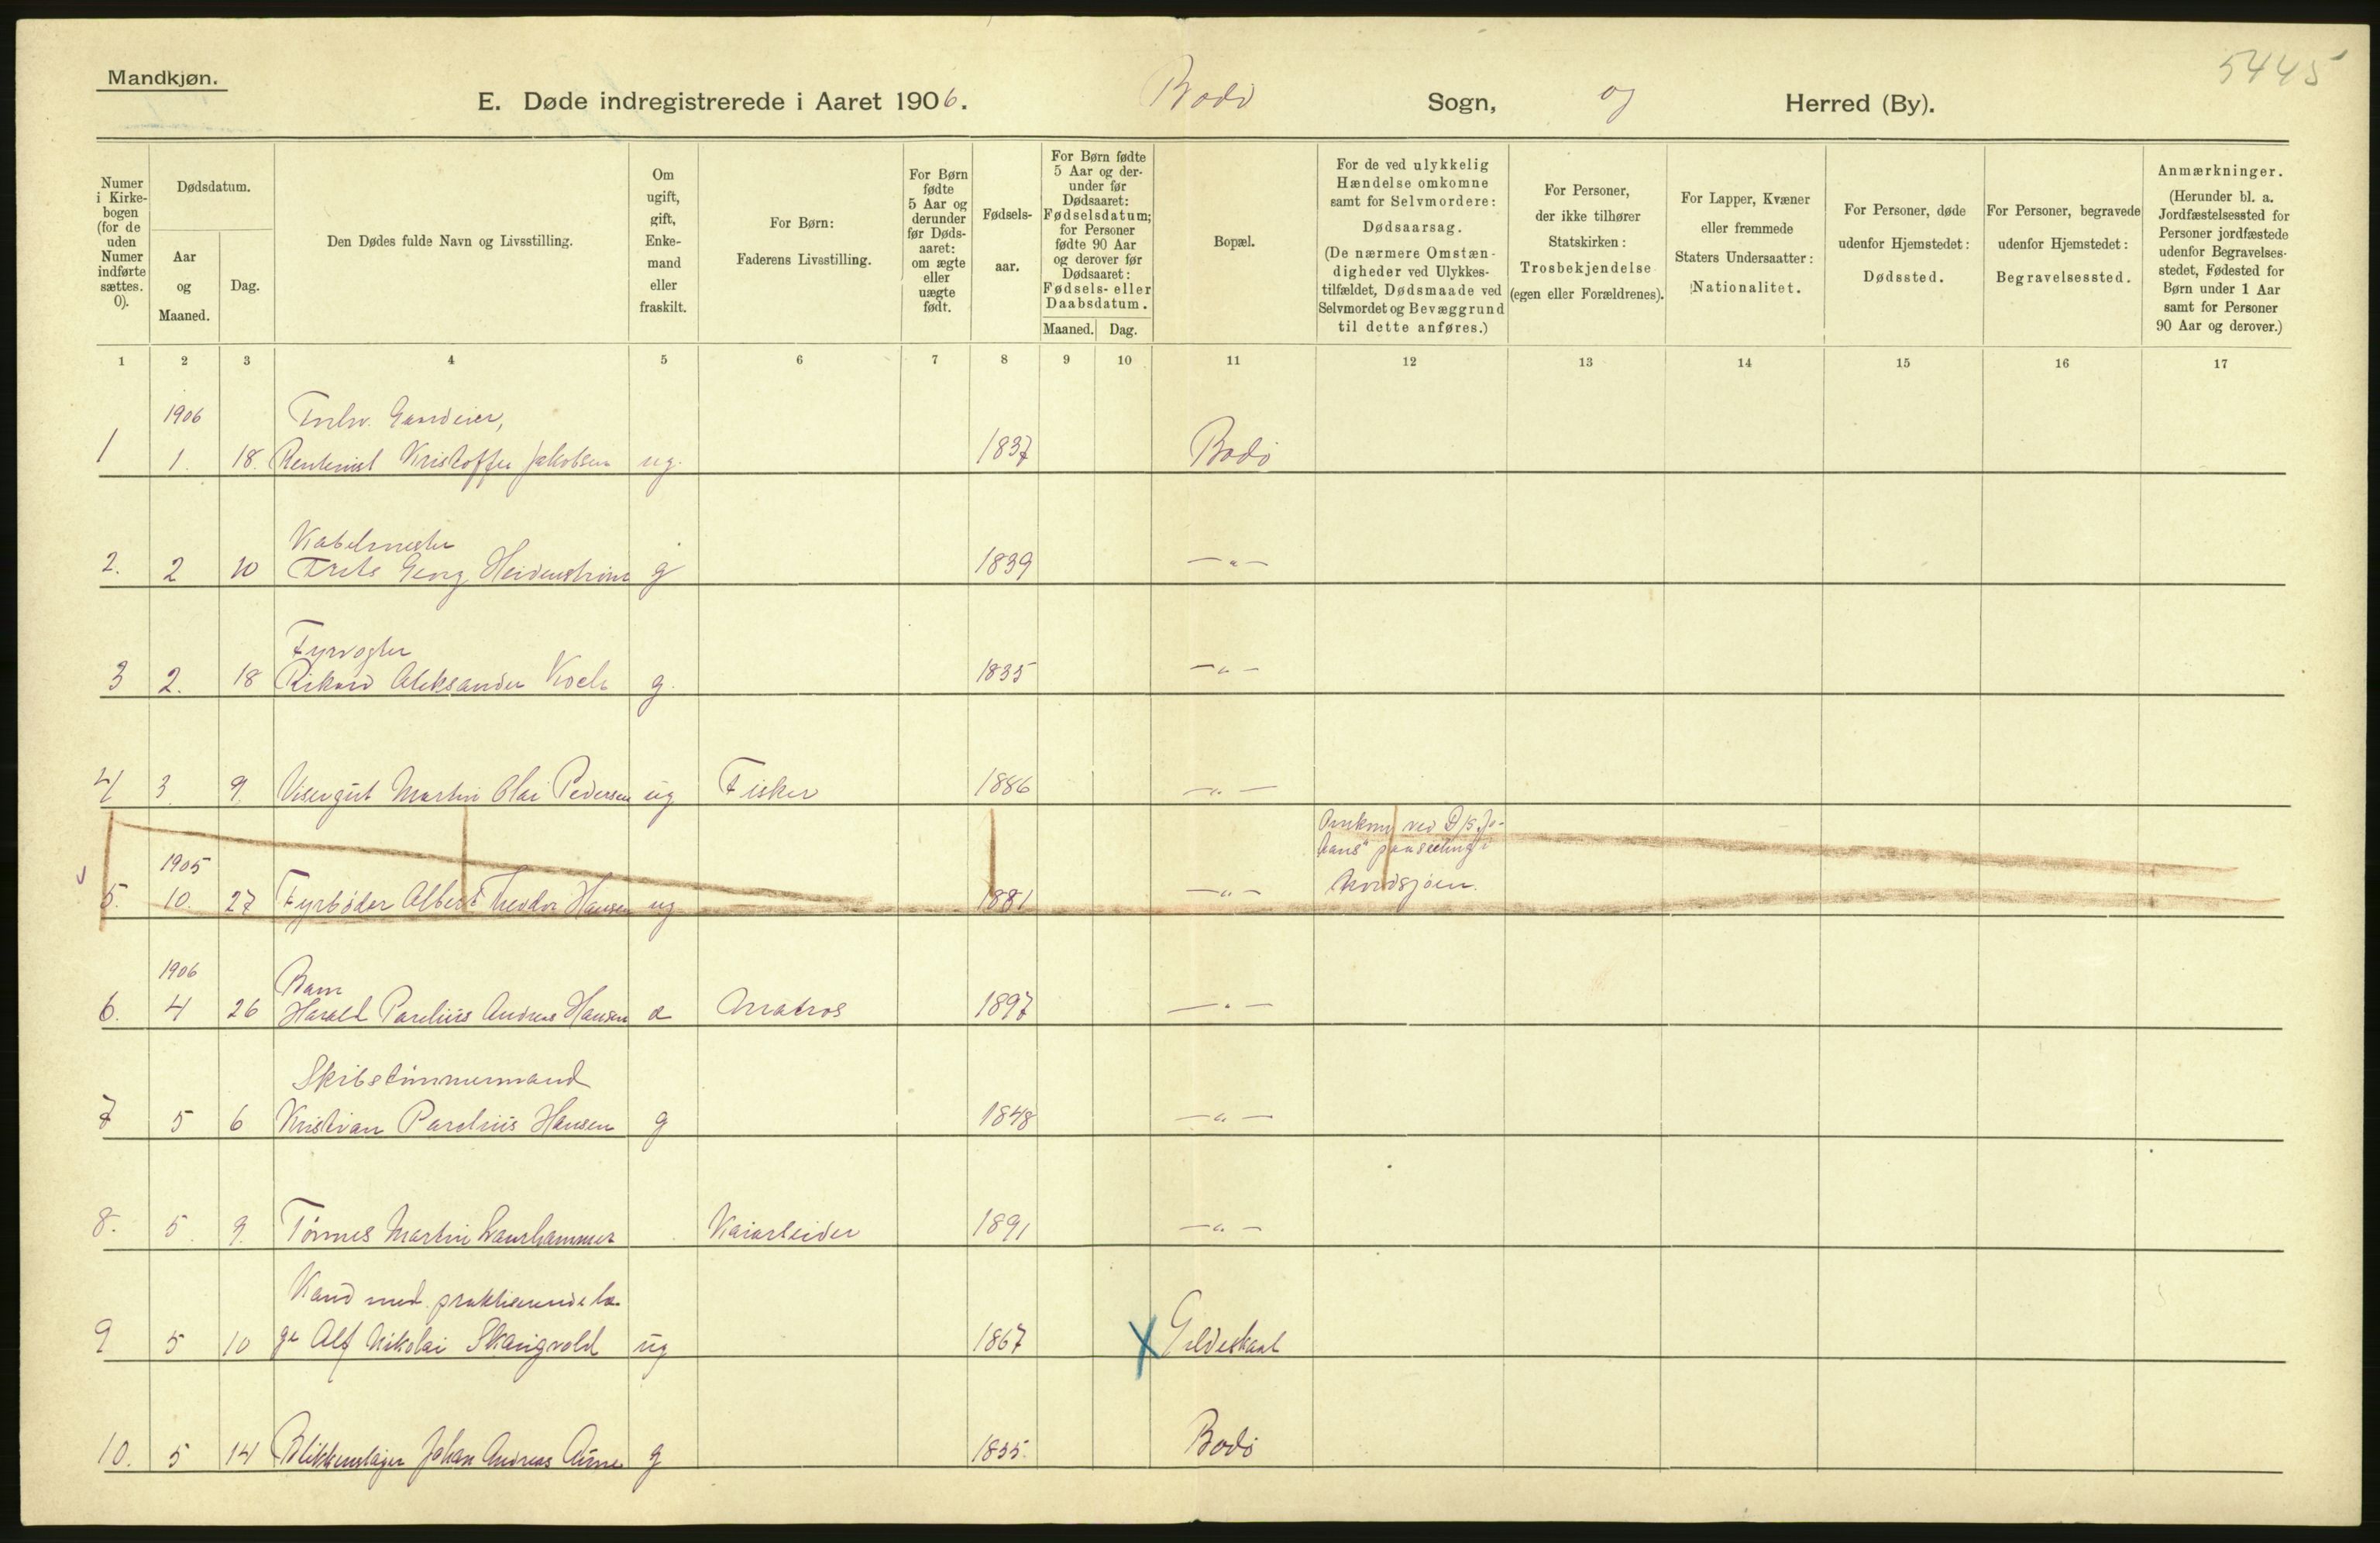 Mandkjøn.
5445
E. Døde indregistrerede i Aaret 1906. Bodø Sogn, og Herred (By).
Numer i Kirkebogen (for de uden Numer indførte sættes. 0).
Dødsdatum.
Aar og Maaned.
Dag.
Den Dødes fulde Navn og Livsstilling.
Om ugift, gift, Enkemand eller fraskilt.
For Børn:
Faderens Livsstilling.
For Børn fødte 5 Aar og derunder før Dødsaaret: om ægte eller uægte født.
Fødselsaar.
For Børn fødte 5 Aar og derunder før Dødsaaret: Fødselsdatum; for Personer fødte 90 Aar og derover før Dødsaaret: Fødsels- eller Daabsdatum.
Maaned. Dag.
Bopæl.
For de ved ulykkelig Hændelse omkomne samt for Selvmordere:
Dødsaarsag.
(De nærmere Omstændigheder ved Ulykkestilfældet, Dødsmaade ved Selvmordet og Bevæggrund til dette anføres.)
For Personer, der ikke tilhører Statskirken:
Trosbekjendelse (egen eller Forældrenes).
For Lapper, Kvæner eller fremmede Staters Undersaatter:
Nationalitet.
For Personer, døde udenfor Hjemstedet:
Dødssted.
For Personer, begravede udenfor Hjemstedet:
Begravelsessted.
Anmærkninger.
(Herunder bl. a. Jordfæstelsessted for Personer jordfæstede udenfor Begravelsesstedet, Fødested for Børn under 1 Aar samt for Personer 90 Aar og derover.)
1 2 3 4 5 6 7 8 9 10 11 12 13 14 15 16 17
1906 Gaardeier,
1 1. 18. Kristoffer Jakobsen ug. 1837 Bodø
Kabelmester
2. 2 10 Georg g 1839 —"—
Fyrvogter
3 2. 18 Rikard Aleksander Koch g. 1835 —"—
4 3. 9. Visergut Martin Olai Pedersen ug Fisker 1886 —"—
Omkom ved D/S "Jo-
1905 hans"
5. 10. 27 Fyrbøder Albert Theodor Hansen ug 1881 —"— Nordsjøen.
1906 Barn
6. 4 26 Harald Parelius Andreas Hansen Matros 1897 —"—
Skibstømmermand
7 5 6 Kristian Parelius Hansen g 1848 —"—
8. 5. 9. Tønnes Martin Kaiarbeider 1891 —"—
Kand med. praktiserende læ-
9 5 10 ge Alf Nikolai ug 1867 X Gildeskaal
10. 5 14 Blikkenslager Johan Andreas g 1835. Bodø